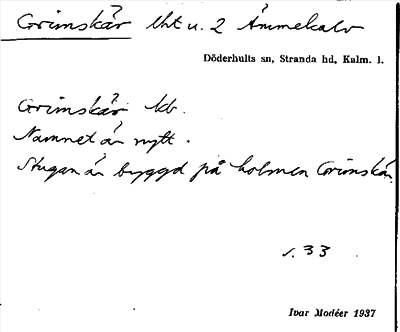 Grimskär lht u. 2 Ämmekalv
Döderhults sn, Stranda hd, Kalm. l.
Grimskär. kb.
Namnet är nytt.
Stugan är byggd på holmen Grimskär.
s. 33
Ivar Modéer 1937